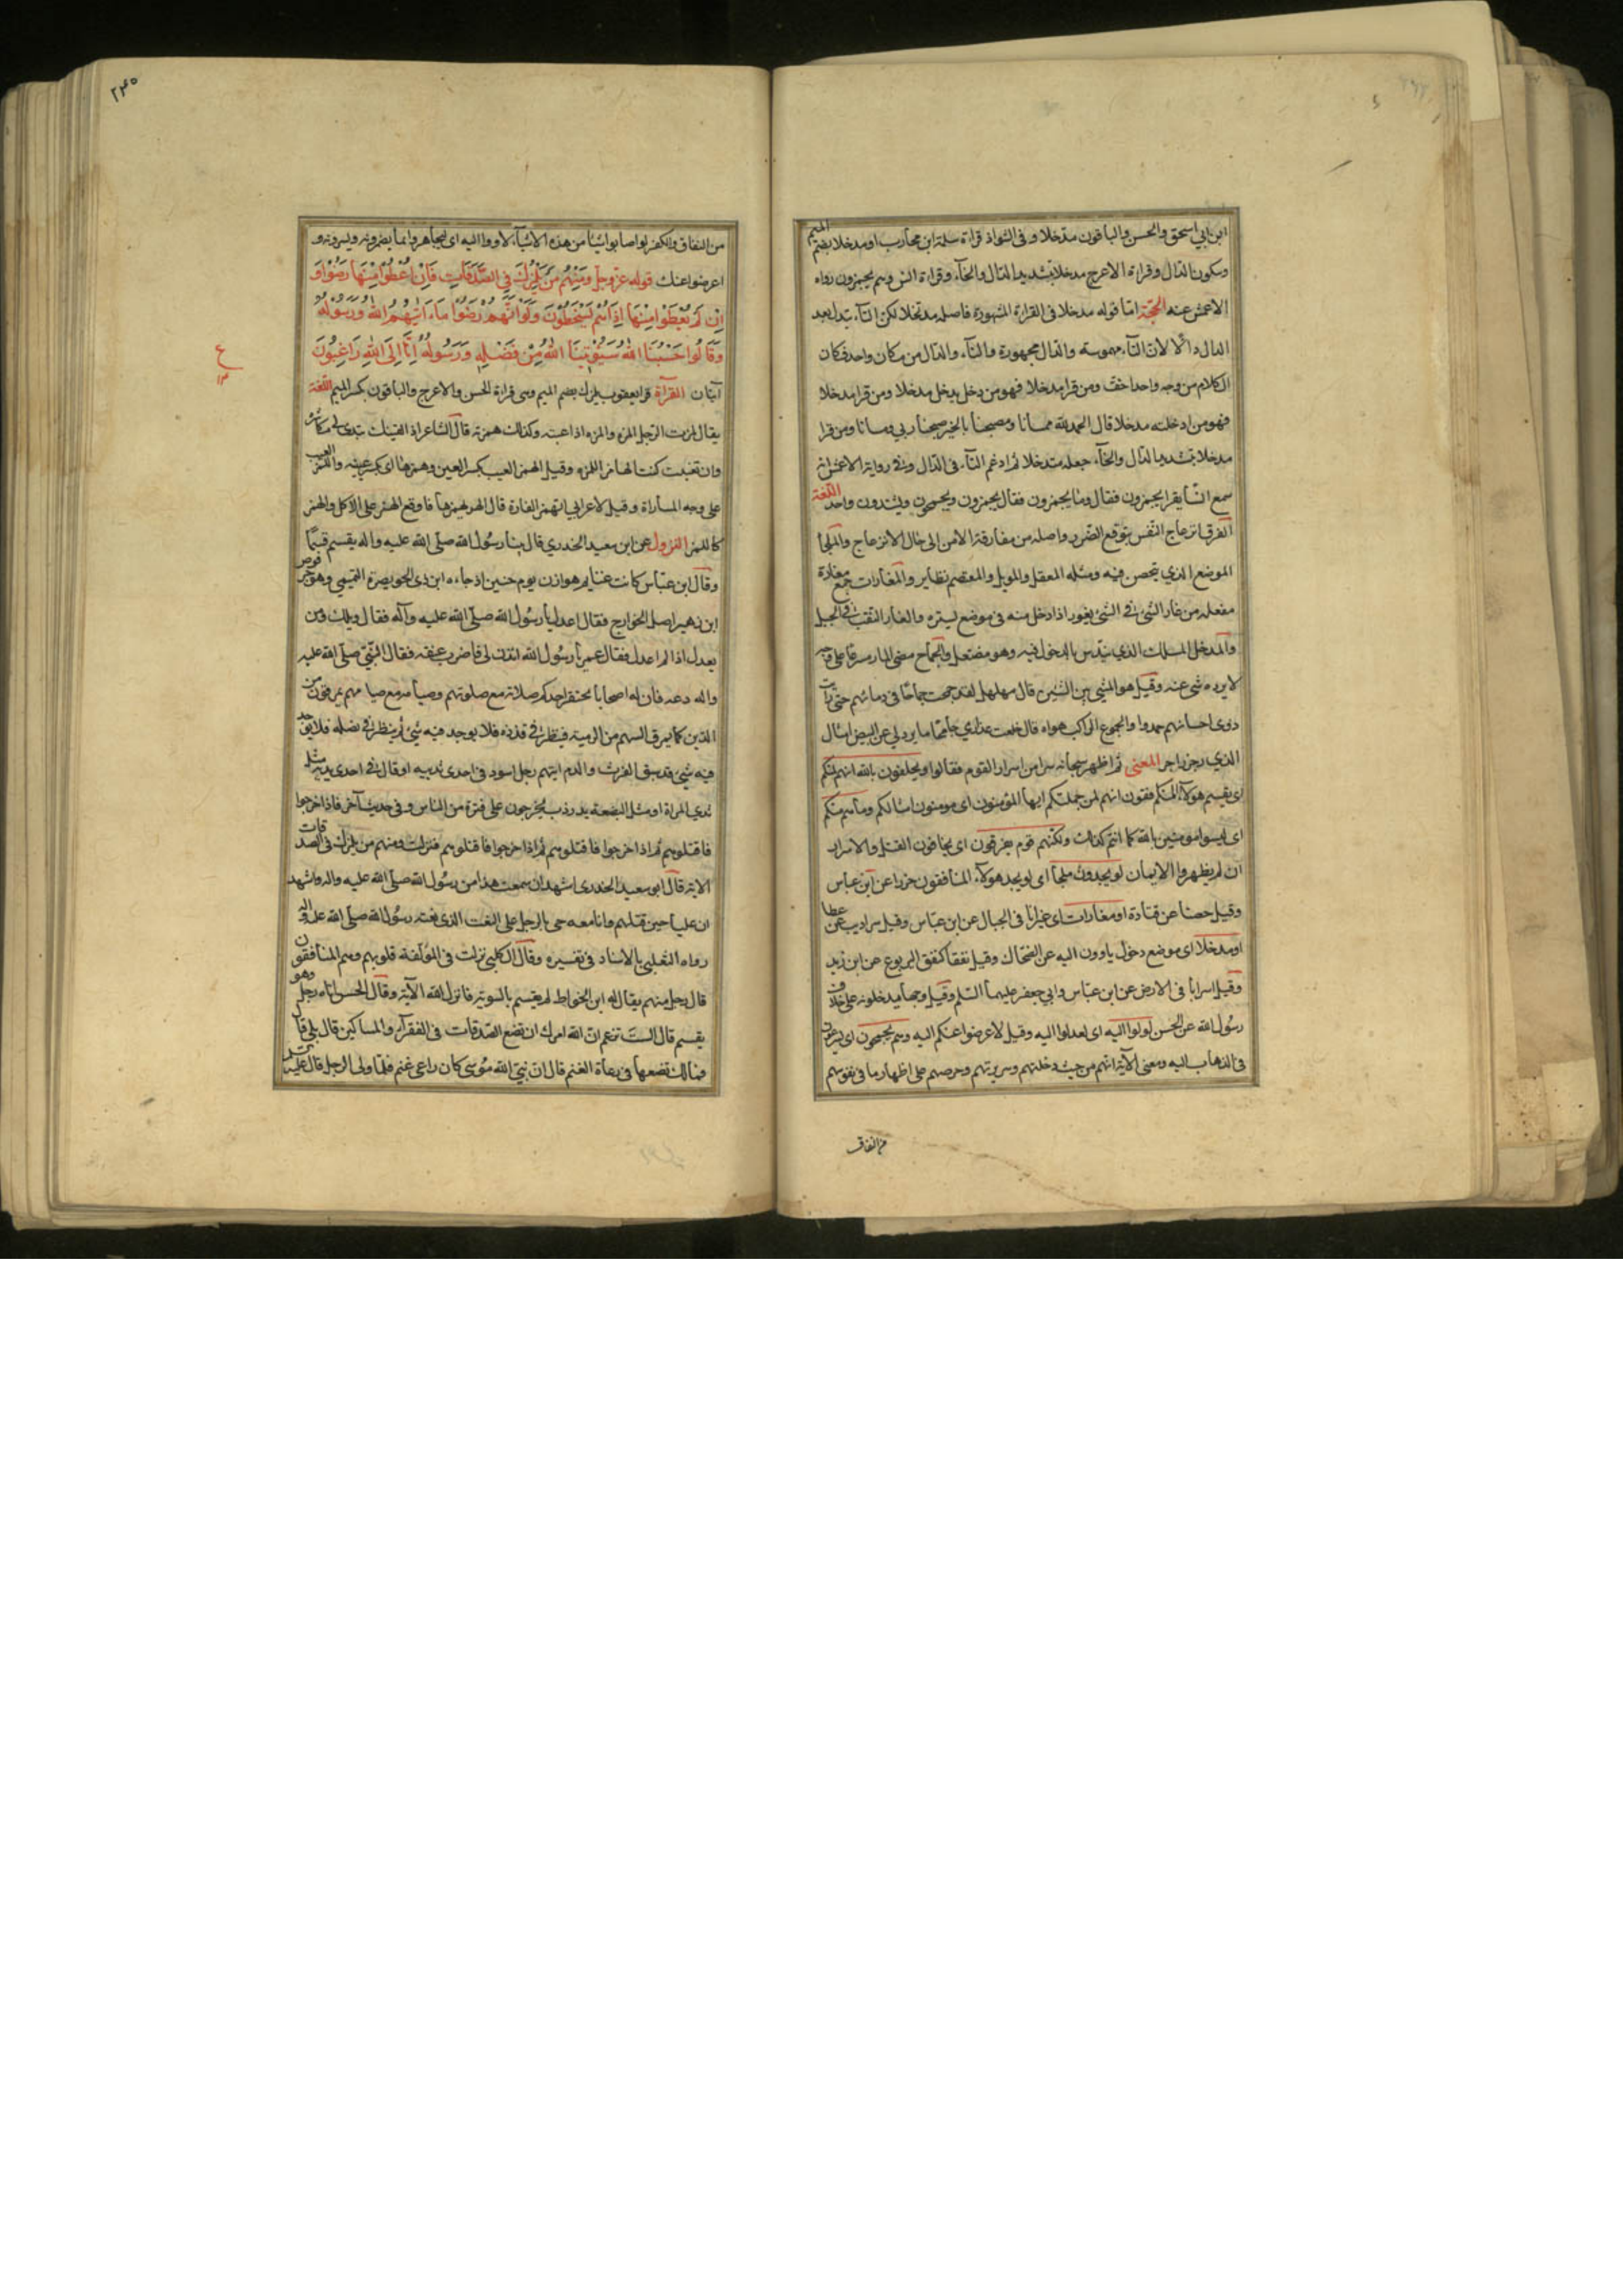 ابن ابي اسحق والحسن والباقون مدّخلا و فى الشواذ قراءة سلمة ابن محارب او مدخلا بفتح الميم
وسكون الدال وقراءة الاعرج مدخلا بتشديد الدال والخآء وقراءة انس وهم يجمزون رواه
الاعمش عنه الحجّة امّا قوله مدخلا فى القراءة المشهورة فاصله مدتخلا لكن التآء تبدل بعد
الدال دالًا لانّ التآء مهموسة والدال مجهورة والتآء والدال من مكان واحد فكان
الكلام من وجه واحد اخفّ ومن قرا مدخلا فهو من دخل يدخل مدخلا ومن قرا مدخلا
فهو من ادخلته مدخلا قال الحمد للّه ممسانا ومصبحنا بالخير صبحنا ربي ومسانا ومن قرا
مدخلا بتشديد الدال والخآء جعله متدخلا ثم ادغم التآء فى الدال وفى رواية الاعمش انه
سمع انسا يقرا يجمزون فقال وما يجمزون فقال يجمزون ويجمحون ويشتدون واحد اللّغة
الفرق انزعاج النّفس بتوقع الضّرر واصله من مفارقة الامن الى حال الانزعاج والملجأ
الموضع الذي يتحصن فيه ومثله المعقل والمويل والمعتصم نظاير والمغارات جمع مغارة
مفعلة من غار الشئ فى الشئ يغور اذا دخل منه فى موضع يستره والغار النّقب فى الجبل
والمدخل المسلك الذي يتدسّ بالدخول فيه وهو مفتعل والجماح مضى المار مسرعا على وجهه
لا يرده شئ عنه وقيل هو المشي بين المشيين قال مهلهل لقد جمحت جماحًا فى دمائهم حتى رايت
ذوى احسابهم خمدوا والجموح الراكب هواه قال خلعت عذاري جامحًا ما يردني عن البيض امثال
الدمي زجر زاجر المعنى ثم اظهر سبحانه سرا من اسرار القوم فقال ويحلفون باللّه انهم لمنكم
اى يقسم هولآء المنافقون انهم لمن جملتكم ايها المؤمنون اى مومنون امثالكم وما هم منكم
اى ليسوا مومنين باللّه كما انتم كذلك ولكنّهم قوم يفرقون اى يخافون القتل والاسر
ان لم يظهروا الايمان لو يجدون ملجأ اى لو يجد هولآء المنافقون حرزا عن ابن عباس
وقيل حصنا عن قتادة او مغارات اى غيرانا فى الجبال عن ابن عبّاس وقيل سراديب عن عطا
او مدخلا اى موضع دخول ياوون اليه عن الضحّاك وقيل نفقا كنفق اليربوع عن ابن زيد
وقيل اسرابا فى الارض عن ابن عبّاس وابي جعفر عليهما السّلم وقيل وجها يدخلونه على خلاف
رسُول اللّه عن الحسن لولوا اليه اى لعدلوا اليه وقيل لاعرضوا عنكم اليه وهم يجمحون اى يسرعون
فى الذهاب اليه ومعنى الآية انّهم من خبث دخلتهم وسريرتهم وحرصهم على اظهار ما فى نفوسهم
من النفاق
٢٤٥
من النفاق والكفر لو اصابوا شيئا من هذه الاشيآء لاووا اليه اى ليجاهروا بما يضمرونه ويسرونه و
اعرضوا عنك قوله عزّ وجلّ وَمِنْهُمْ مَنْ يَلْمِزُكَ فِي الصَّدَقَاتِ فَاِنْ اُعْطُوا مِنْهَا رَضُوْا وَ
اِنْ لَمْ يُعْطَوْا مِنْهَا اِذَا هُمْ يَسْخَطُوْنَ وَلَوْ اَنَّهُمْ رَضُوْا مَا اٰتٰيهُمُ اللّٰهُ وَرَسُوْلُهُ
وَقَالُوا حَسْبُنَا اللّٰهُ سَيُؤْتِيْنَا اللّٰهُ مِنْ فَضْلِهِ وَرَسُولُهُ اِنَّا اِلَى اللّٰهِ رَاغِبُوْنَ
ع
١٣
آيتان القرآءة قرا يعقوب يلمزك بضم الميم وهى قراءة الحسن والاعرج والباقون بكسر الميم اللّغة
يقال لمزت الرّجل المزه والمزه اذا عبته وكذلك همزته قال الشاعر اذا لقيتك تبدى لى مكاشرة
وان تغيبت كنت الهامز اللمزه وقيل الهمز العيب بكسر العين وغمزها اى بكسر عينه واللمز العيب
على وجه المسارّة وقيل لاعرابي اتهمز الفارة قال الهر يهمزها فاوقع الهمز على الاكل والهمز
كاللمز النزول عن ابن سعيد الخدري قال بينا رسُول اللّه صلّى اللّه عليه واله يقسم قسمًا
وقال ابن عبّاس كانت غنايم هوازن يوم حنين اذ جاءه ابن ذى الخويصرة التميمي وهو حرقوص
ابن زهير اصل الخوارج فقال اعدل يا رسُول اللّه صلّى اللّه عليه وآله فقال ويلك ومن
يعدل اذا لم اعدل فقال عمر يا رسُول اللّه ائذن لى فاضرب عنقه فقال النّبيّ صلّى اللّه عليه
واله دعه فان له اصحابا يحتقر احدكم صلاته مع صلوتهم وصيامه مع صيامهم يمرقون من
الدّين كما يمرق السهم من الرمية فينظر فى قذذه فلا يوجد فيه شئ ثم ينظر فى نصله فلا يوجد
فيه شئ قد سبق الفرث والدم ايتهم رجل اسود فى احدى ثدييه او قال فى احدى يديه مثل
ثدي المراة او مثل البضعة تدردر يخرجون على فترة من الناس وفى حديث آخر فاذا خرجوا
فاقتلوهم ثم اذا خرجوا فاقتلوهم ثم اذا خرجوا فاقتلوهم فنزلت ومنهم من يلمزك فى الصدقات
الاية قال ابو سعيد الخدرى اشهد ان سمعت هذا من رسُول اللّه صلّى اللّه عليه واله واشهد
ان عليا حين قتلهم وانا معه جى بالرجل على النعت الذى نعته رسُول اللّه صلّى اللّه عليه واله
رواه الثعلبي بالاسناد فى تفسيره وقال الكلبي نزلت فى المؤلفة قلوبهم وهم المنافقون
قال رجل منهم يقال له ابن الخواط لم يقسم بالسوية فانزل اللّه الآية وقال الحسن اتاه رجل وهو
يقسم قال الست تزعم انّ اللّه امرك ان تضع الصّدقات فى الفقرآء والمساكين قال بلى قال
فما لك تضعها فى رعاة الغنم قال ان نبيّ اللّه مُوسى كان راعى غنم فلمّا ولى الرجل قال عليه السلم